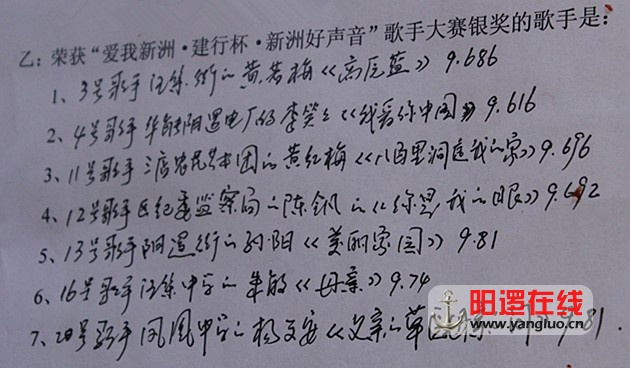 乙：荣获“爱我新洲·建行杯·新洲好声音”歌手大赛银奖的歌手是：
1、3号歌手汪集街的黄若梅《高原蓝》9.686
2、4号歌手华能阳逻电厂的李《我爱你中国》9.616
3、11号歌手三店农民艺术团的黄红梅《八百里洞庭我的家》9.696
4、12号歌手区纪委监察局的陈钢的《你是我的眼》9.692
5、13号歌手阳逻街的孙阳《美丽家园》9.81
6、16号歌手汪集中学的朱敏《母亲》9.74
7、20号歌手凤凰中学的杨文安《父亲的草原 9.81.
阳逻在线
www.yangluo.cn